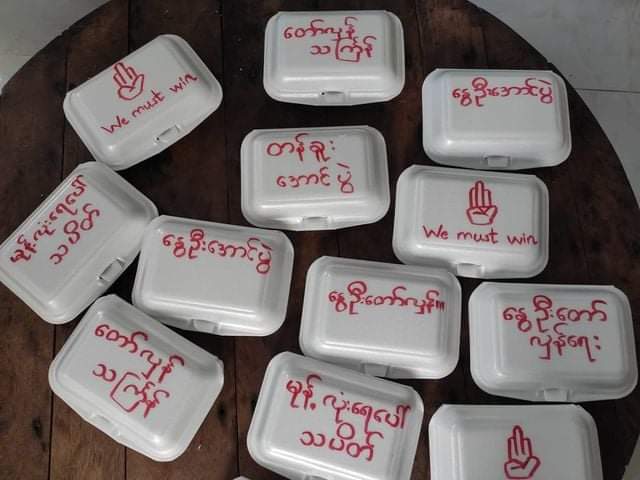 တော်လှန်
သင်္ကြန်
We must win
နွေဦးအောင်ပွဲ
တန်ခူး
အောင်ပွဲ
We must win
မုန့်လုံးရေပေါ်
သပိတ်
နွေဦးအောင်ပွဲ
နွေဦးတော်လှန်!!!
နွေဦးတော်
လှန်ရေး
တော်လှန်
သင်္ကြန်
မုန့်လုံးရေပေါ်
သပိတ်